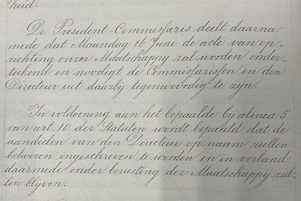 heid.
De President-Commissaris deelt daarna
mede dat Maandag 16 Juni de acte van op-
richting onzer Maatschappij zal worden onder-
teekend en noodigt de Commissarissen en den
Directeur uit daarbij tegenwoordig te zijn.
In voldoening aan het bepaalde bij alinea 5
van art. 10 der Statuten wordt bepaald dat de
aandeelen van den Directeur op naam zullen
behooren ingeschreven te worden en in verband
daarmede onder berusting der Maatschappij zul-
len blijven.